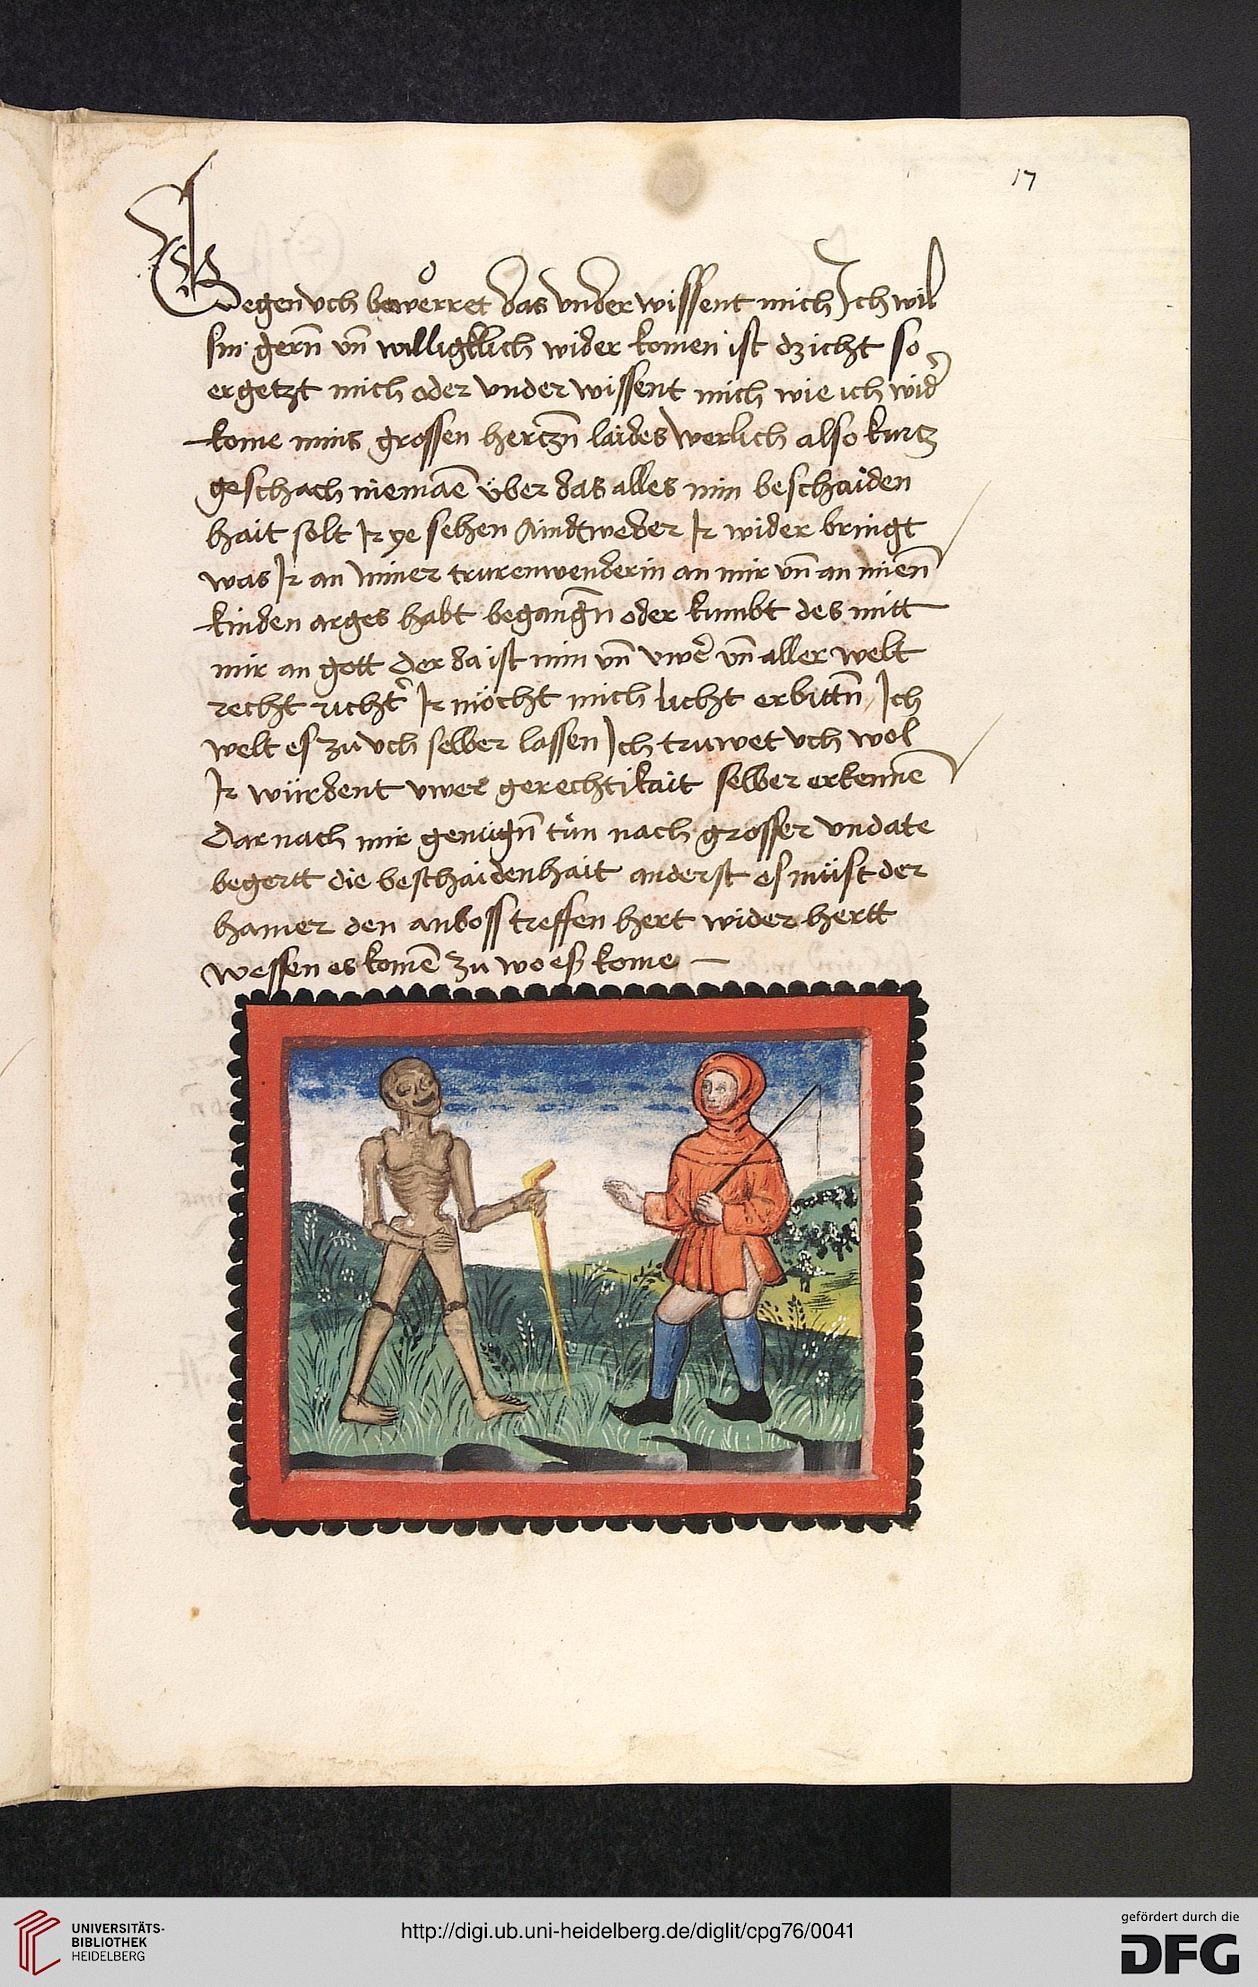 17
Gegen vch bewerret das vnder wissent mich Ich wil
sin gern̄ vn̄ willigklich wider komen ist dz icht so
ergetzt mich oder vnder wissent mich wie ich wid̾
kome mins grossen hertzn̄ laides werlich also kurtz
geschach niemāe über das alles min beschaiden
hait solt Ir ye sehen Aindtweder Ir wider bringt
was Ir an miner trurenwenderin an mir vn̄ an mien̄
kinden arges habt begangn̄ oder kumbt des mitt
mir an gott der da ist min vn̄ vwe᷑ vn̄ aller welt
recht richt᷑ Ir möcht mich licht erbittn̄ Ich
welt es zu vch selber lassen Ich truwet vch wol
Ir würdent vwer gerechtikait selber erkenne
dar nach mir genügn̄ tün nach grosser vndate
begertt die beschaidenhait anderst es müist der
hamer den anboss treffen hert wider hertt
wessen es komē zu wo es kome
UNIVERSITÄTS-
BIBLIOTHEK
HEIDELBERG
http://digi.ub.uni-heidelberg.de/diglit/cpg76/0041
gefördert durch die
DFG